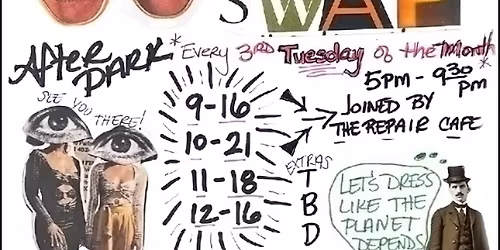 SWAP
AFTER DARK*
Every 3RD Tuesday of the Month*
5PM - 9:30 pm
SEE YOU THERE!
9-16
10-21
11-18
12-16
JOINED BY
THE REPAIR CAFE
EXTRAS
TBD
LET'S DRESS
LIKE THE
PLANET
DEPENDS